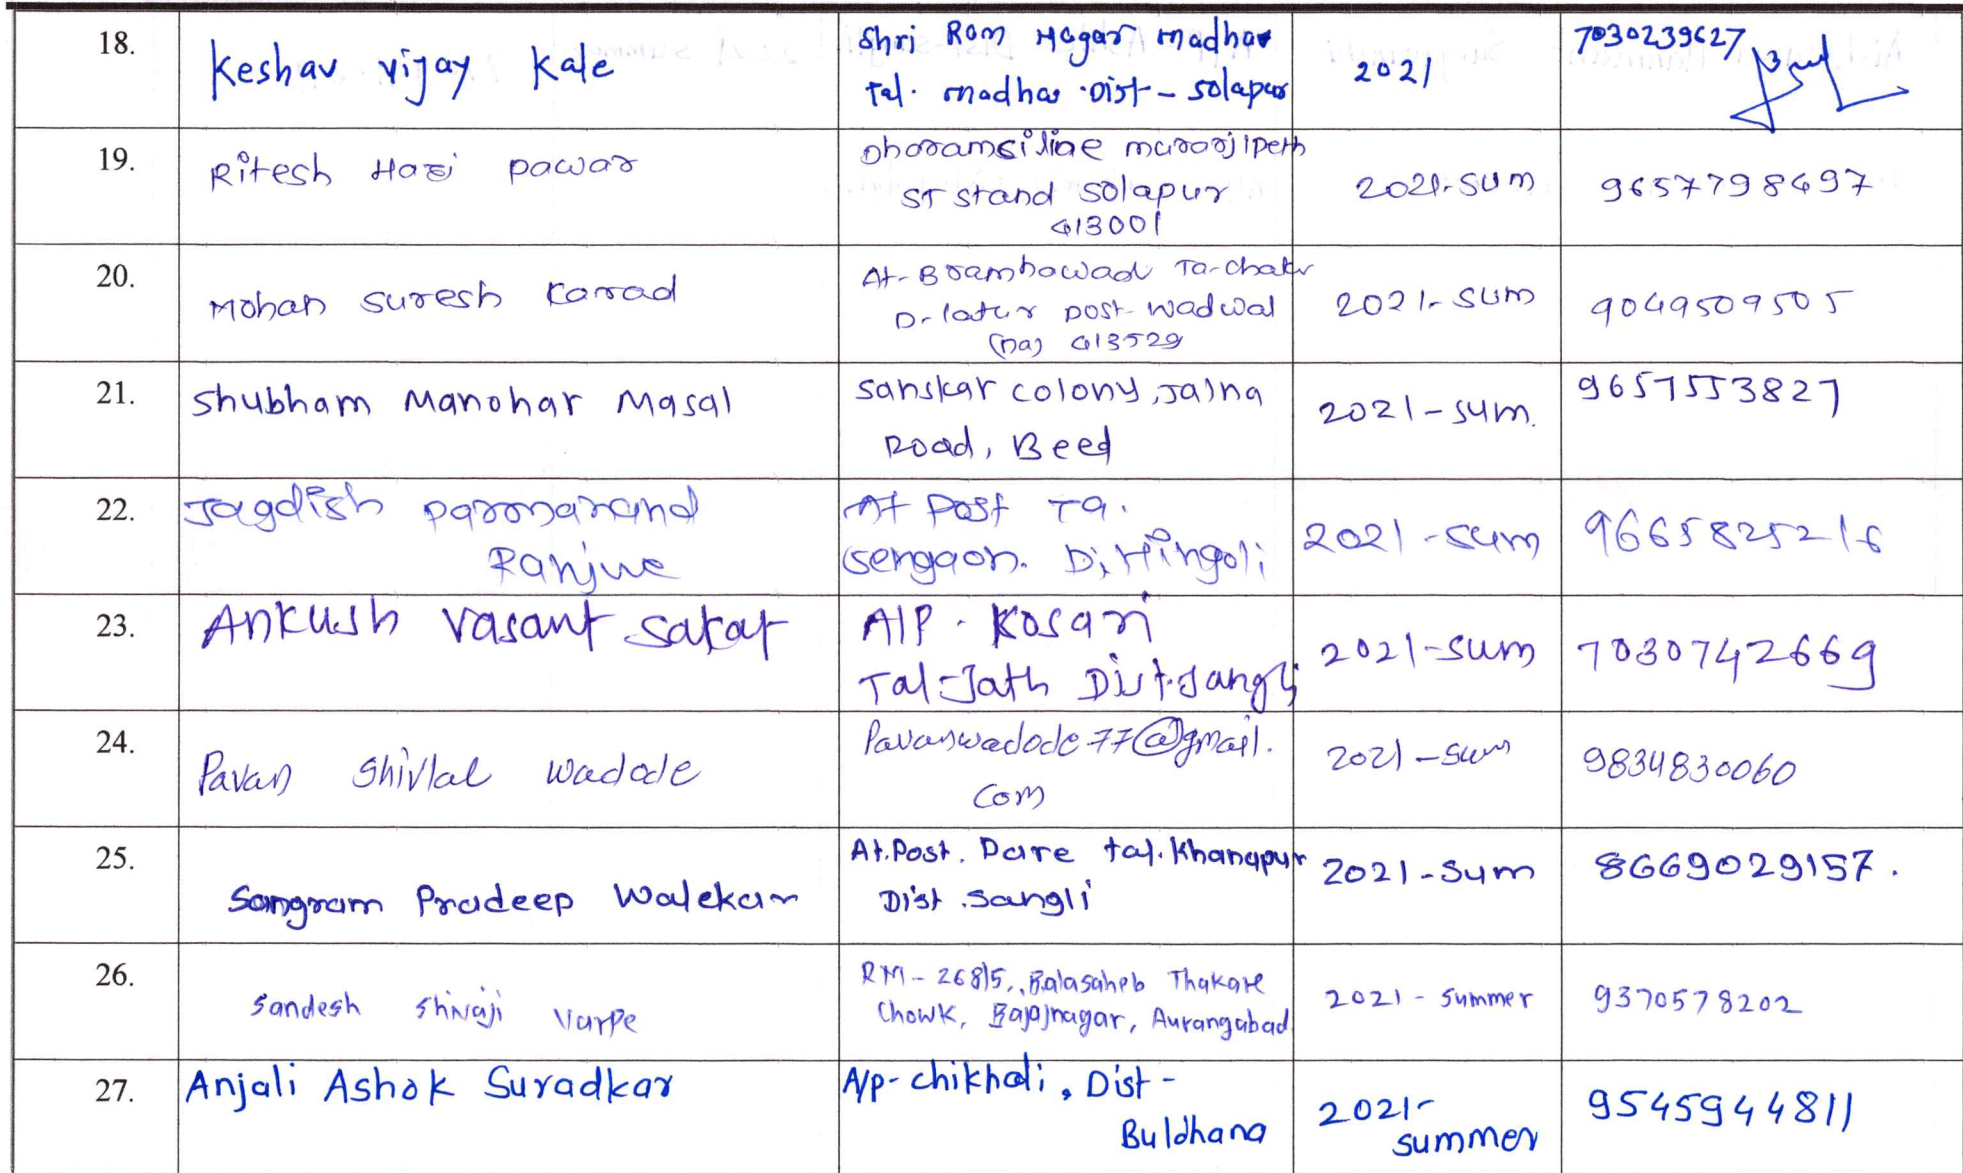 18.
Keshav vijay Kale
Shri Ram Nagar madha
tal. madha Dist - Solapur
2021
7030239627
19.
Ritesh Hari pawar
murarjipeth
ST stand solapur
413001
2021-sum
9657798497
20.
Mohan suresh Karad
At-Brambhawadi Ta-chakr
D-latur post-wadwal
(na) 413529
2021-sum
9049509505
21.
Shubham Manohar Masal
sanskar colony, Jalna
Road, Beed
2021-sum.
9657553827
22.
Jagdish parmanand
Ranjwe
At post Ta.
sengaon. Di, Hingoli
2021-sum
9665825216
23.
Ankush vasant sakat
A/P - Kosari
Tal-Jath Dist.sangli
2021-sum
7030742669
24.
Pavan Shivlal wadode
Pavanwadode77@gmail.
com
2021-sum
9834830060
25.
Sangram Pradeep Walekar
At.Post. Dare tal. Khanapur
Dist. sangli
2021-sum
8669029157.
26.
Sandesh Shivaji Varpe
RM-268/5, Balasaheb Thakare
Chowk, Bajajnagar, Aurangabad
2021 - summer
9370578202
27.
Anjali Ashok Suradkar
A/p- chikhali, Dist-
Buldhana
2021-
summer
9545944811